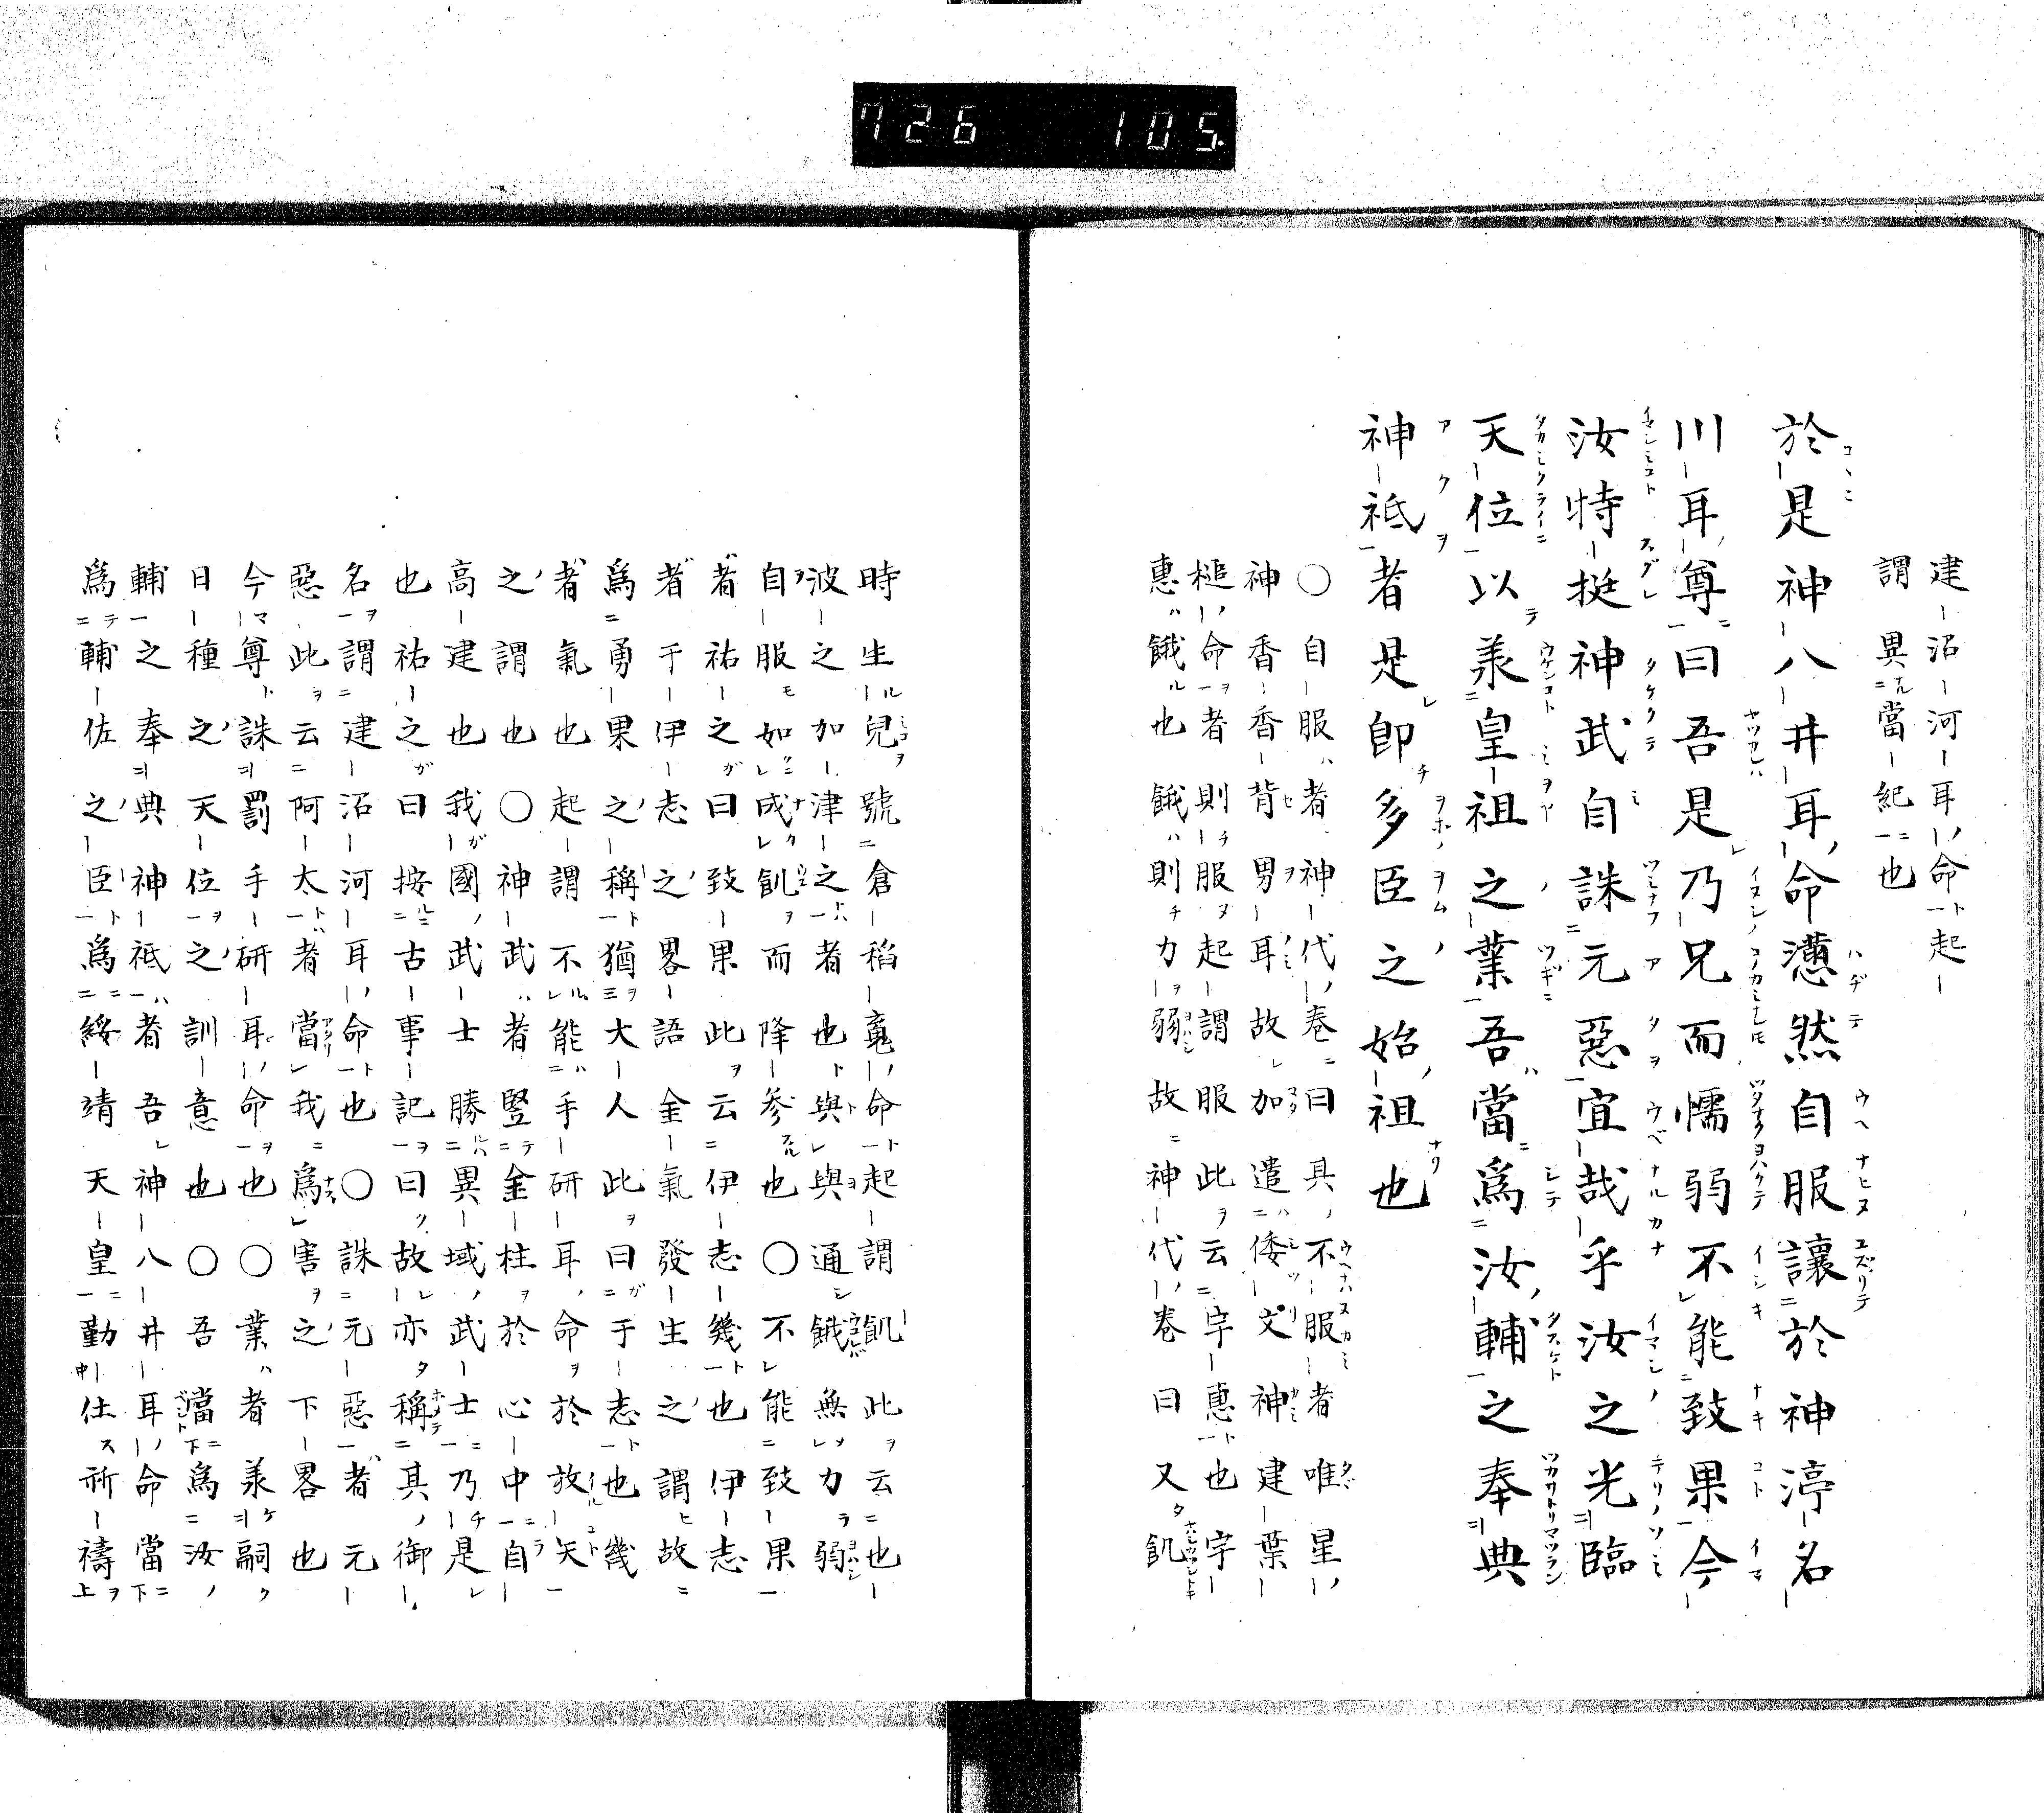 726 105
建沼河耳命起
謂異當紀也
於是神八井耳命懣然自服讓於神渟名
川耳尊曰吾是乃兄而懦弱不能致果今
汝特挺神武自誅元惡宜哉乎汝之光臨
天位以羕皇祖之業吾當爲汝輔之奉典
神祇者是即多臣之始祖也
○自服者神代卷曰其不服者唯星
神香香背男耳故加遣倭文神建葉
槌命者則服起謂服此云宇惠也宇
惠餓也餓則力弱故神代卷曰又飢
時生兒號倉稻䰠命起謂飢此云也
波之加津之者也與與通餓無力弱
自服如成飢而降參也○不能致果
者祐之曰致果此云伊志幾也伊志
者于伊志之畧語金氣發生之謂故
爲勇果之稱猶大人此曰于志也幾
者氣也起謂不能手研耳命於放矢
之謂也○神武者竪金柱於心中自
高建也我國武士勝異域武士乃是
也祐之曰按古事記曰故亦稱其御
名謂建沼河耳命也○誅元惡者元
惡此云阿大者當我爲害之下畧也
今尊誅罰手研耳命也○業者羕嗣
日種之天位之訓意也○吾當爲汝
輔之奉典神祇者吾神八井耳命當
爲輔佐之臣爲綏靖天皇勤仕祈禱